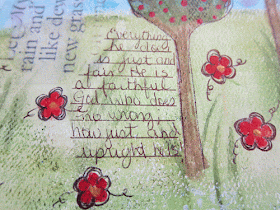 Let
rain and
like dew
new grass
Everything
he does
is just and
fair. He is
a faithful
God who does
no wrong,
how just and
upright he is.